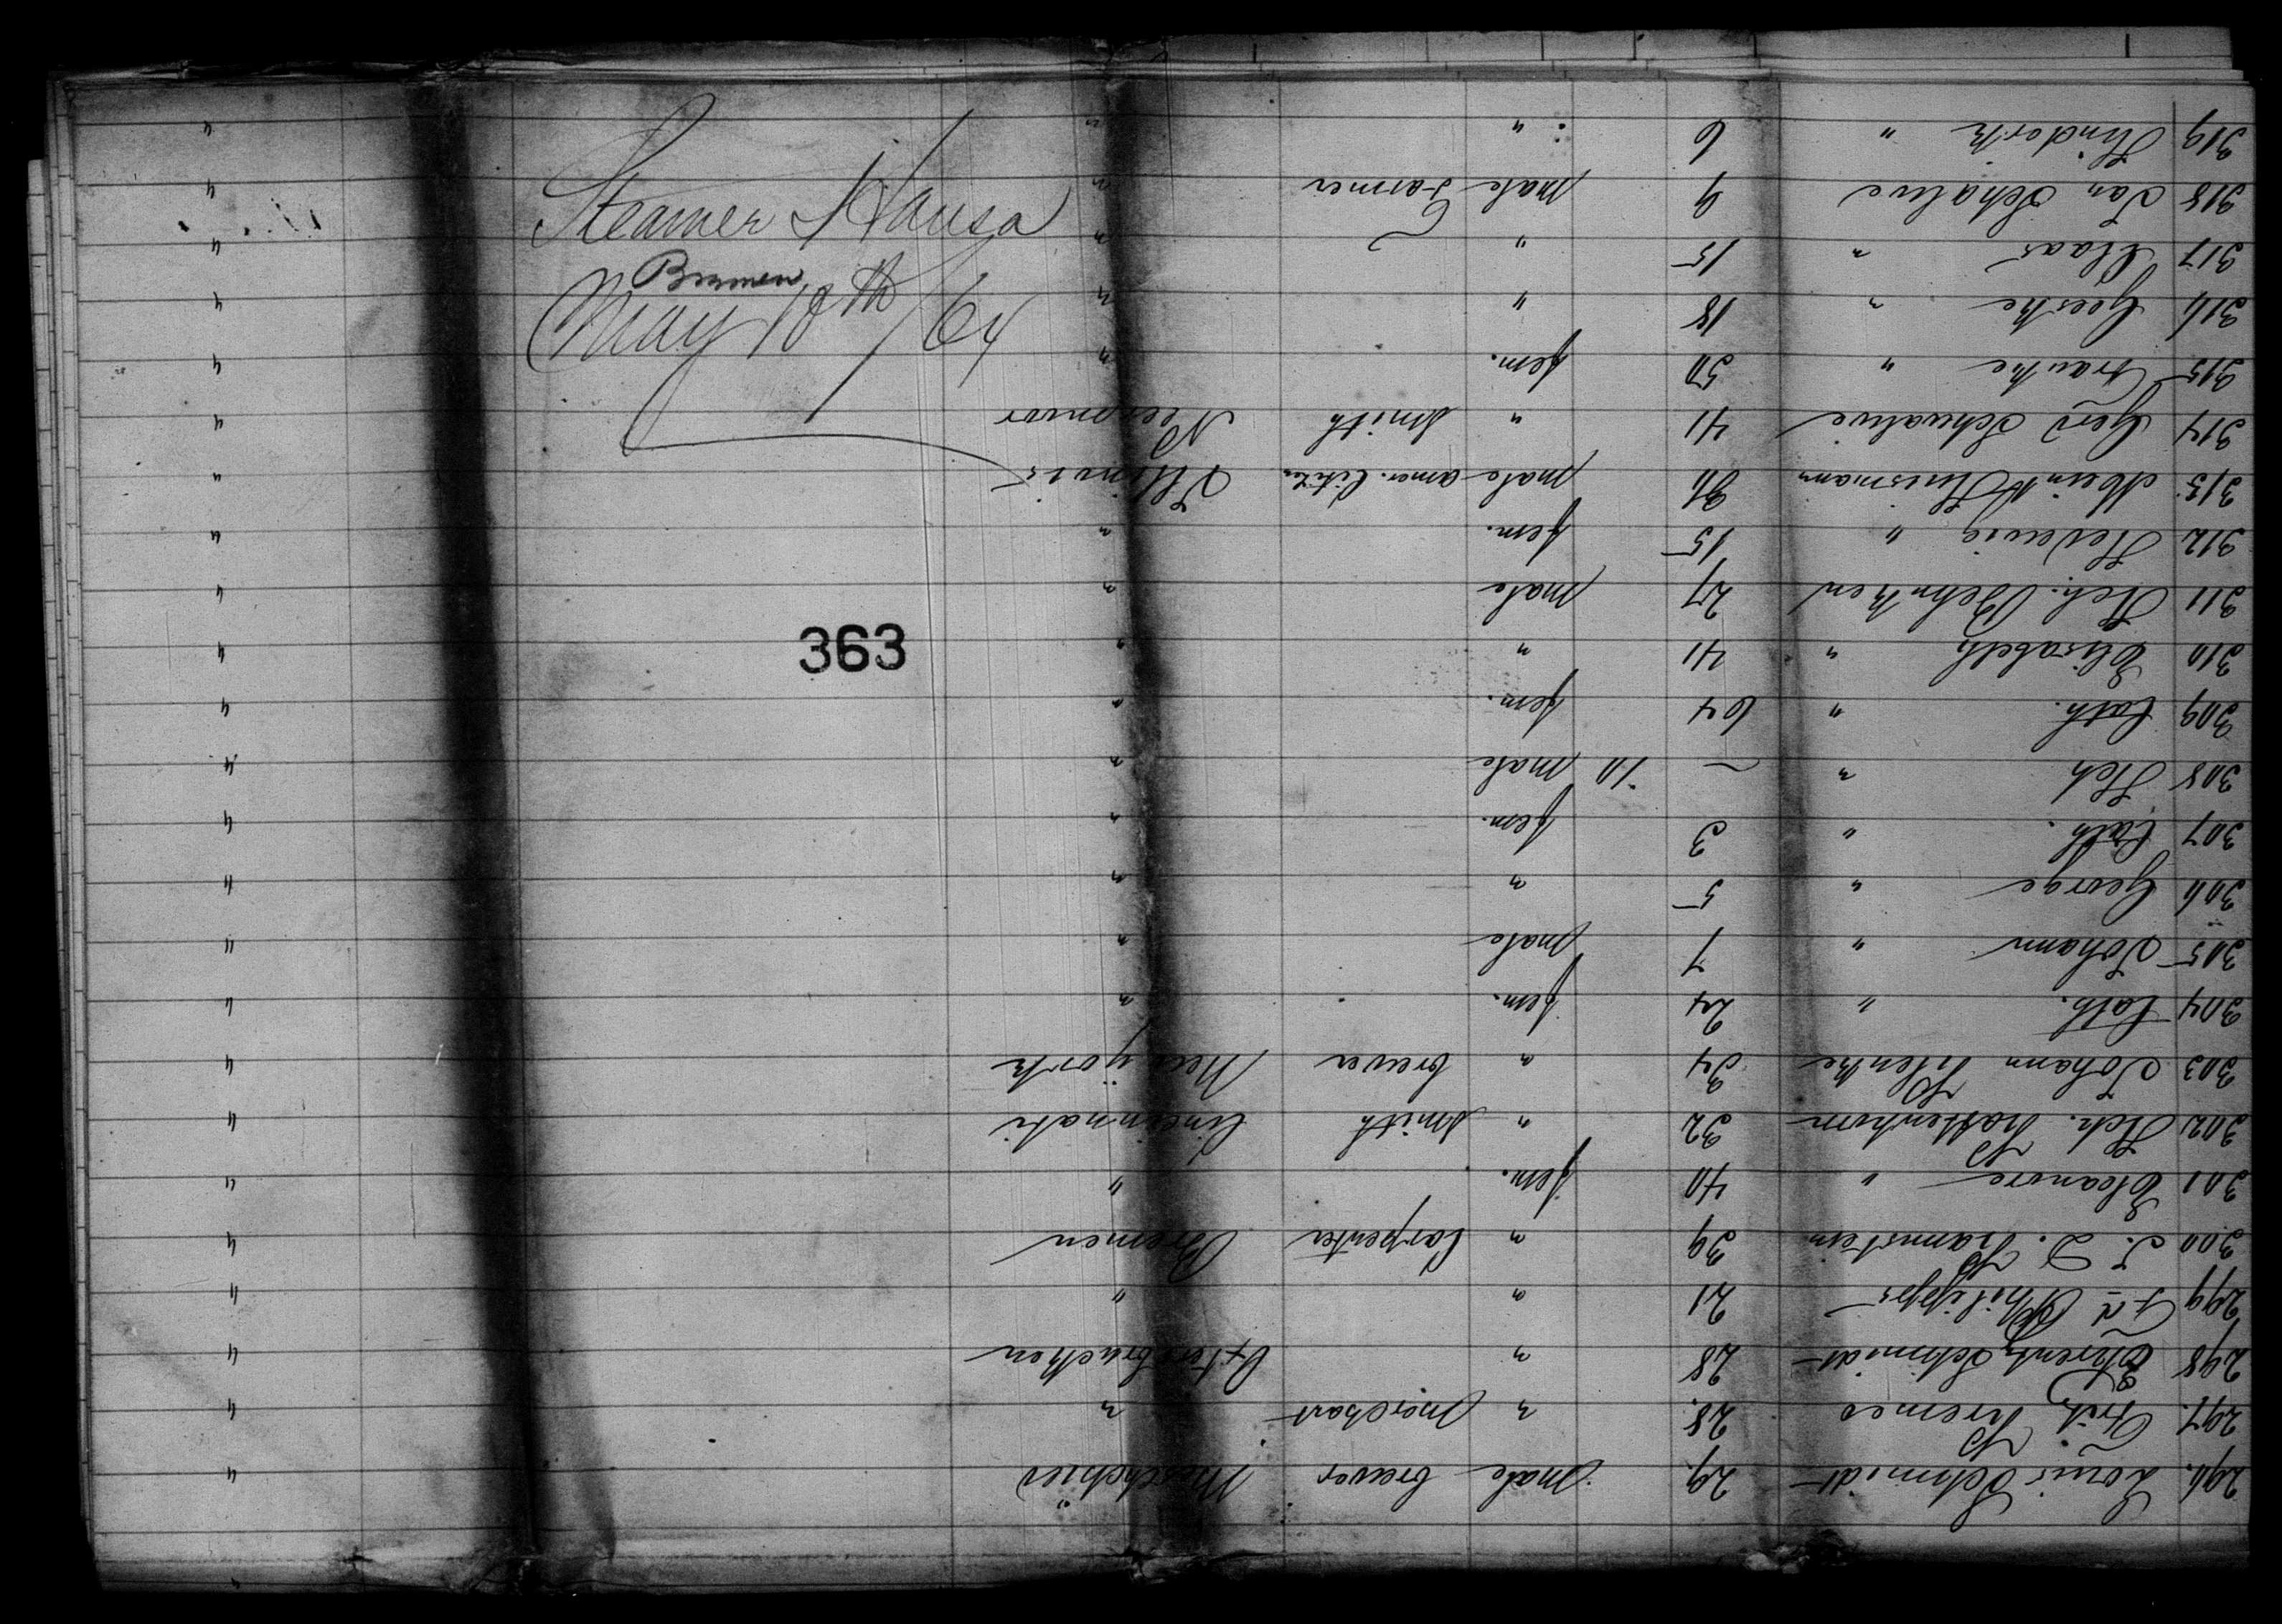 Steamer Hansa
Bremen
May 10th/64
363
296. Louis Schmidt 29. male brewer "
297. Fritz Kremer 28. " " "
298 Schmidt 28 " "
299 Philipps 21 " " "
300 J. D. 39 " Carpenter Bremen "
301 Eleanore " 40 fem. " "
302 Hch. Kattenhorn 32 " Smith Cincinnati "
303 Johann Klenke 34 " brewer New york "
304 Cath. " 24 fem. " "
305 Johann " 7 male " "
306 George " 5 " " "
307 Cath. " 3 fem. " "
308 Hch " — 10 male " "
309 Cath. " 64 fem. " "
310 Elisabeth " 41 " " "
311 Hch. Behnken 27 male " "
312 Hedewig " 15 fem. " "
313. Huismann 36 male amer. Citizen Illinois "
314 Gerd Schwalwe 41 " Smith "
315 Trauke " 50 fem. " "
316 Geeske " 18 " " "
317 Klaas " 15 " " "
318 Jan Schalwe 9 male Farmer " "
319 Hinderk " 6 " " "